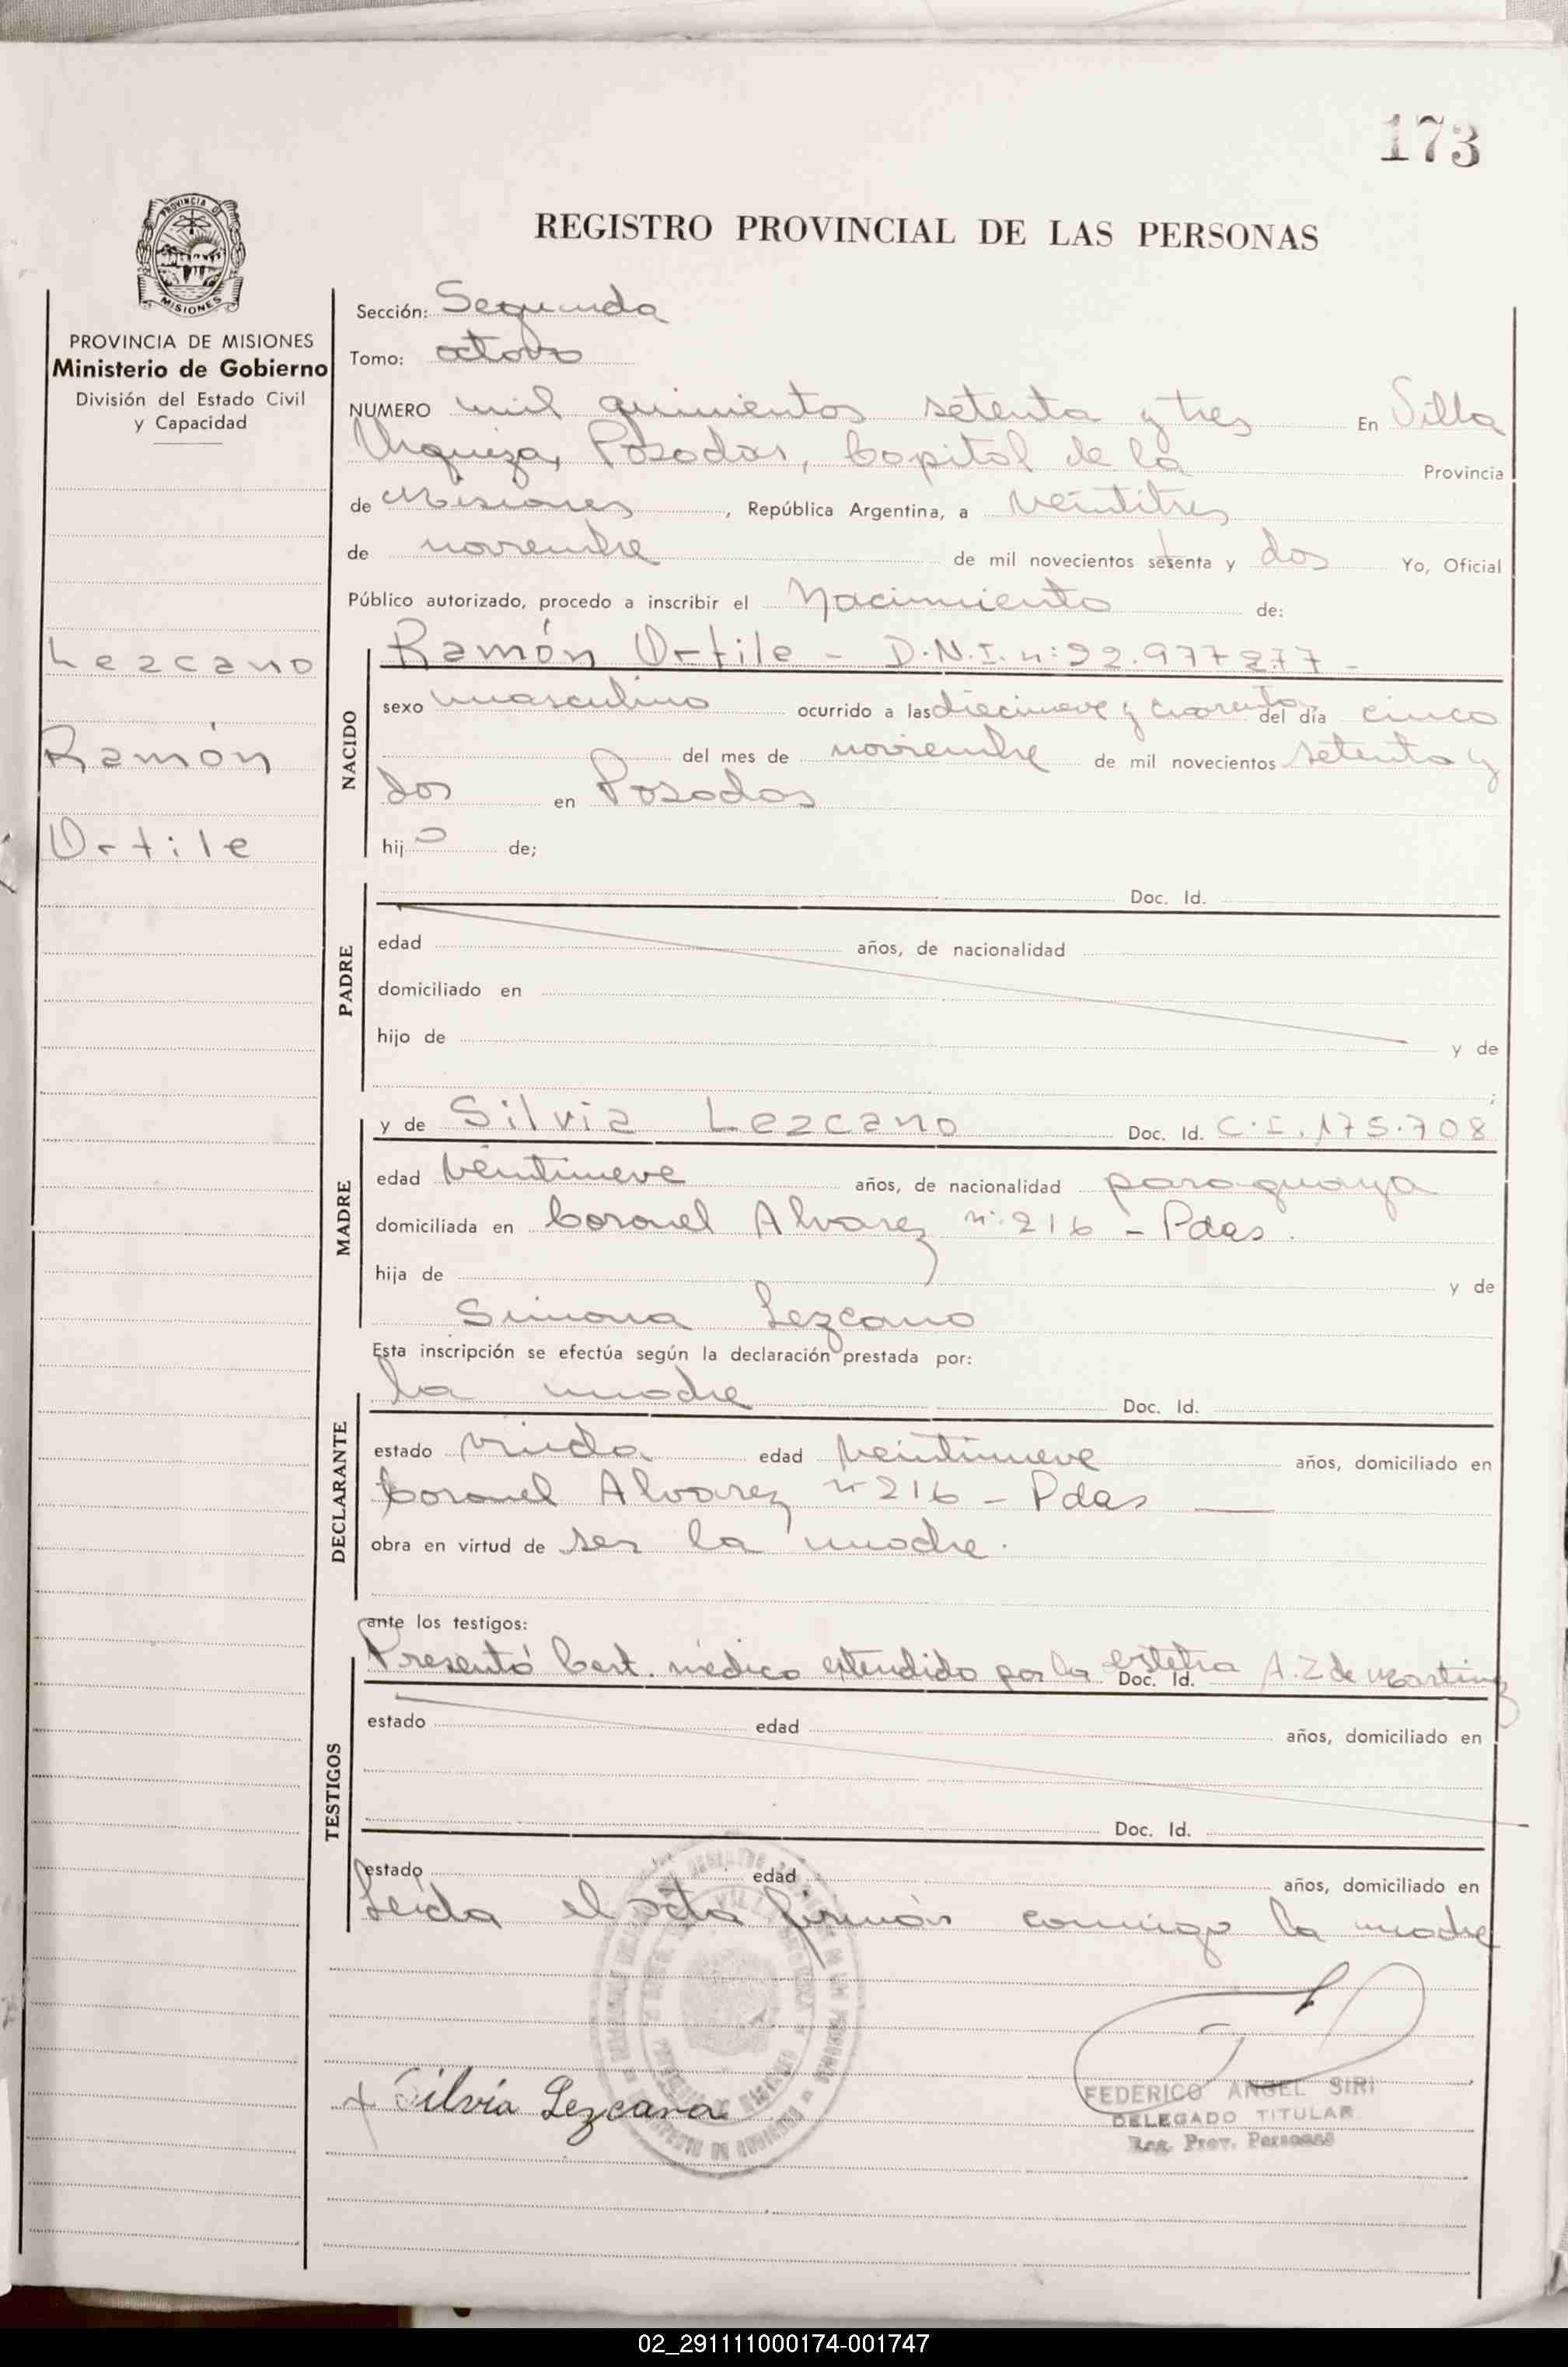 173
REGISTRO PROVINCIAL DE LAS PERSONAS
PROVINCIA DE MISIONES
Ministerio de Gobierno
División del Estado Civil
y Capacidad
Lezcano
Ramón
Ortile
Sección: Segunda
Tomo: octavo
NUMERO mil quinientos setenta y tres En Villa
Urquiza, Posadas, Capital de la Provincia
de Misiones, República Argentina, a veintitres
de noviembre de mil novecientos setenta y dos Yo, Oficial
Público autorizado, procedo a inscribir el Nacimiento de:
NACIDO
Ramón Ortile - D.N.I. nº 22.977.277 -
sexo masculino ocurrido a las diecinueve y cuarenta del día cinco
del mes de noviembre de mil novecientos setenta y
dos en Posadas
hijo de;
PADRE
Doc. Id.
edad años, de nacionalidad
domiciliado en
hijo de y de
MADRE
y de Silvia Lezcano Doc. Id. C.I. 175.708
edad veintinueve años, de nacionalidad paraguaya
domiciliada en Coronel Alvarez nº 216 - Pdas.
hija de y de
Simona Lezcano
Esta inscripción se efectúa según la declaración prestada por:
DECLARANTE
la madre Doc. Id.
estado viuda edad veintinueve años, domiciliado en
Coronel Alvarez nº 216 - Pdas
obra en virtud de ser la madre.
ante los testigos:
TESTIGOS
Presentó Cert. médico extendido por la Doc. Id. A. Z de Martinez
estado edad años, domiciliado en
Doc. Id.
estado edad años, domiciliado en
Leida el acta firman conmigo la madre
Silvia Lezcano
FEDERICO ANGEL SIRI
DELEGADO TITULAR
Reg. Prov. Personas
02_291111000174-001747